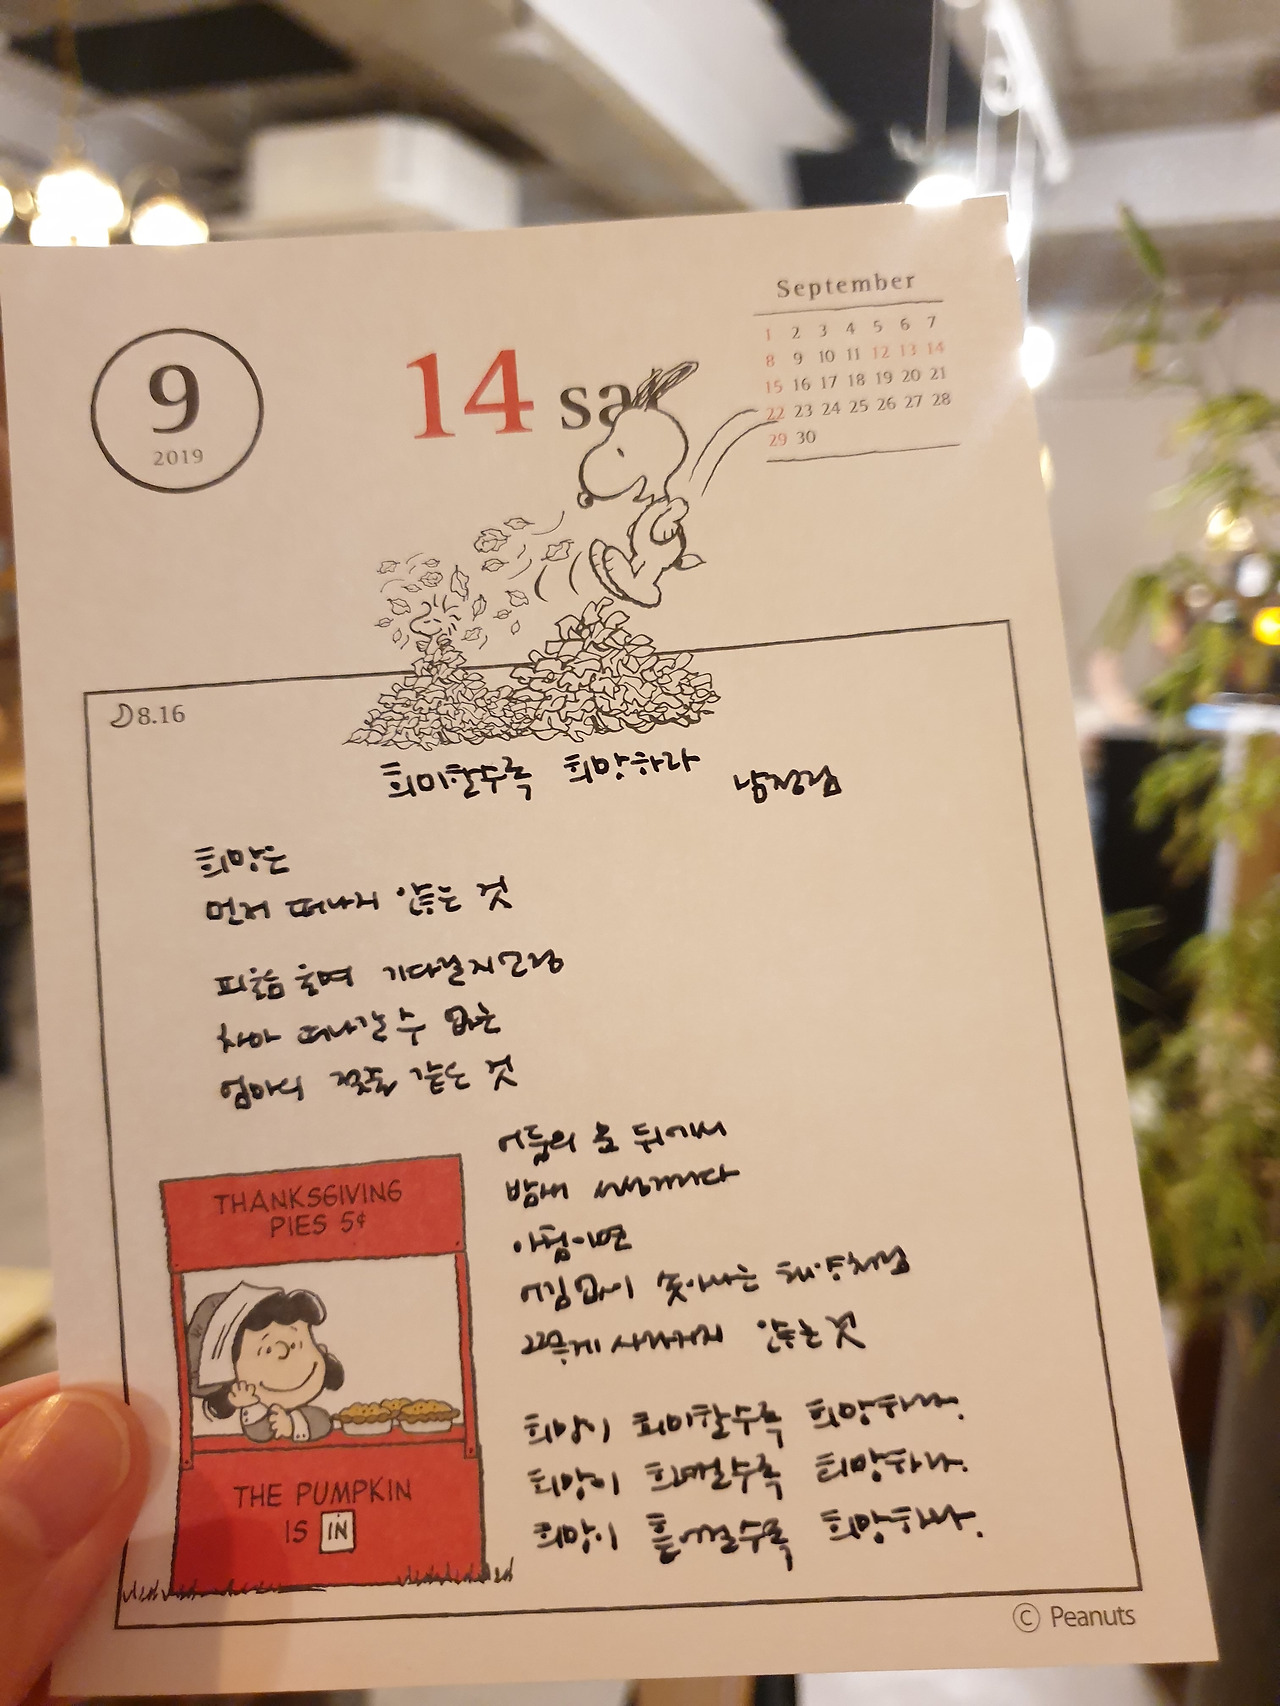 September
1 2 3 4 5 6 7
8 9 10 11 12 13 14
15 16 17 18 19 20 21
22 23 24 25 26 27 28
29 30
9
2019
14 sat
8.16
희미할수록 희망하라
남정림
희망은
먼저 떠나지 않는 것
피울음 울며 기다릴지언정
차마 떠나갈 수 없는
엄마의 젖줄 같은 것
어둠의 눈 뒤에서
밤새 서성이다
아침이면
어김없이 솟아나는 태양처럼
사라지지 않는 것
희망이 희미할수록 희망하라.
희망이 희박할수록 희망하라.
희망이 흩어질수록 희망하라.
THANKSGIVING
PIES 5¢
THE PUMPKIN
IS IN
© Peanuts